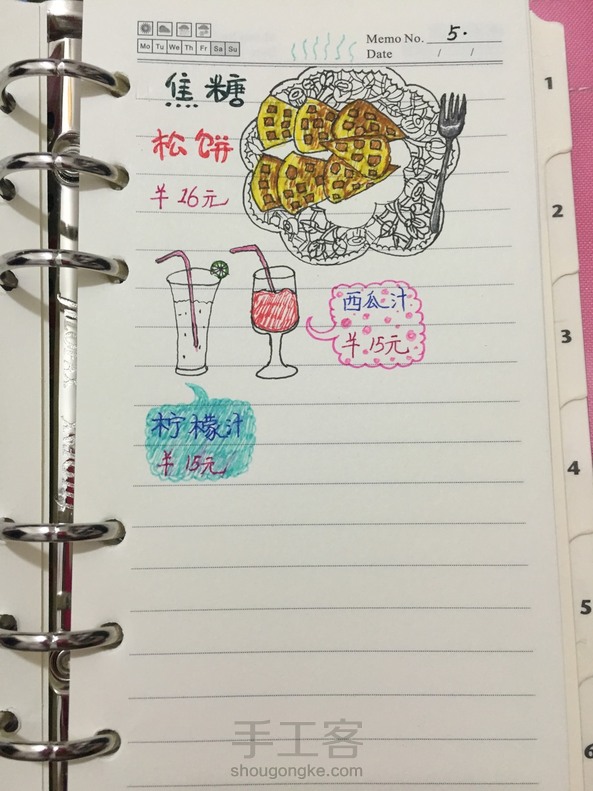 Memo No. 5.
Mo Tu We Th Fr Sa Su
Date / /
焦糖
松饼
¥ 16元
西瓜汁
¥ 15元
柠檬汁
¥ 15元
1
2
3
4
5
6
手工客
shougongke.com